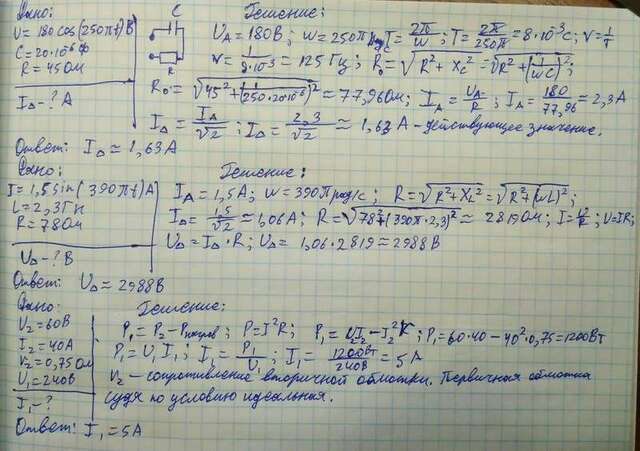 Дано:
U=180cos(250πt)В
C=20·10⁻⁶Ф
R=45Ом
I_Д-? А
C
R
Решение:
U_A=180В; ω=250π рад/с; T=2π/ω; T=2π/250π=8·10⁻³с; ν=1/T
ν=1/8·10⁻³=125Гц; R₀=√R²+Xc²=√R²+(1/ωC)²;
R₀=√45²+(1/250·20·10⁻⁶)²≈77,96Ом; I_A=U_A/R; I_A=180/77,96=2,3А
I_Д=I_A/√2; I_Д=2,3/√2≈1,63А-действующее значение.
Ответ: I_Д≈1,63А
Дано:
I=1,5sin(390πt)А
L=2,3Гн
R=78Ом
U_Д-? В
Решение:
I_A=1,5А; ω=390π рад/с; R=√R²+X_L²=√R²+(ωL)²;
I_Д=1,5/√2≈1,06А; R=√78²+(390π·2,3)²≈2819Ом; I=U/R; U=IR;
U_Д=I_Д·R; U_Д=1,06·2819≈2988В
Ответ: U_Д≈2988В
Дано:
U₂=60В
I₂=40А
r₂=0,75Ом
U₁=240В
I₁-?
Решение:
P₁=P₂-Pнагрев; P=I²R; P₁=U₂I₂-I₂²r; P₁=60·40-40²·0,75=1200Вт
P₁=U₁I₁; I₁=P₁/U₁; I₁=1200Вт/240В=5А
r₂-сопротивление вторичной обмотки. Первичная обмотка
судя по условию идеальная.
Ответ: I₁=5А